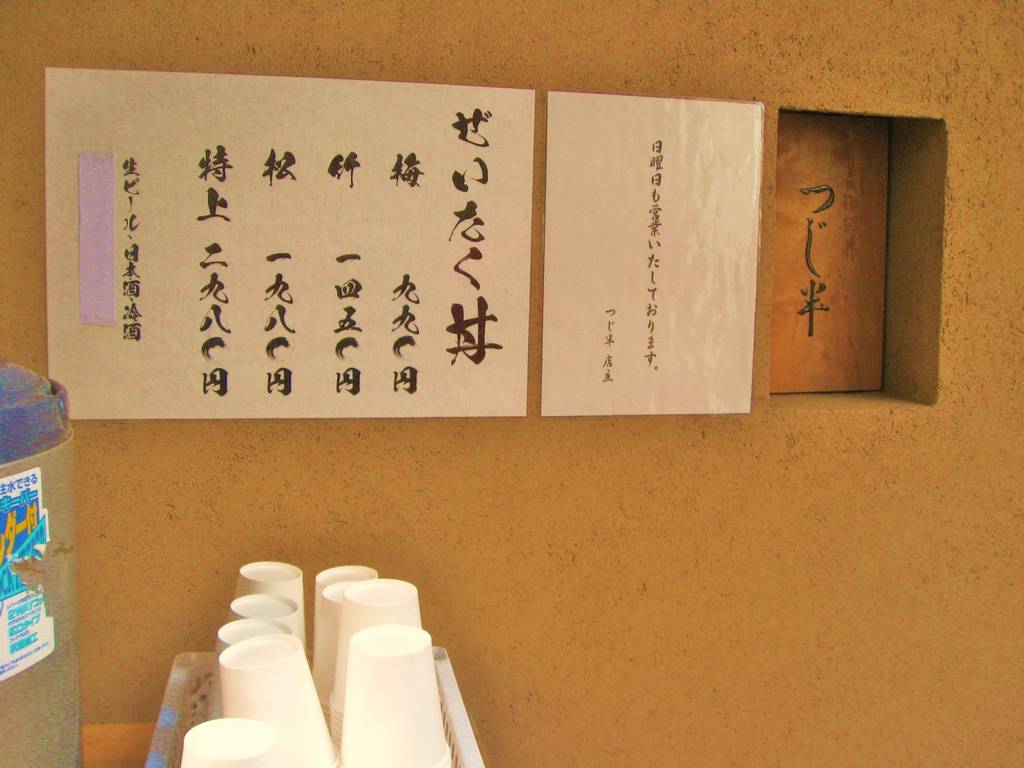 つじ半
日曜日も営業いたしております。
つじ半 店主
ぜいたく丼
梅 九九〇円
竹 一四五〇円
松 一九八〇円
特上 二九八〇円
生ビール・日本酒・冷酒
注水できる
キーパー